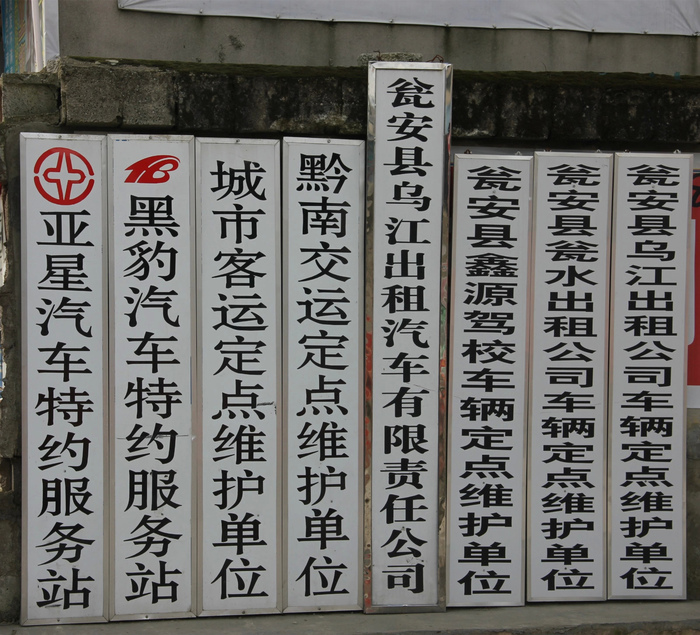 亚星汽车特约服务站
黑豹汽车特约服务站
城市客运定点维护单位
黔南交运定点维护单位
瓮安县乌江出租汽车有限责任公司
瓮安县鑫源驾校车辆定点维护单位
瓮安县瓮水出租公司车辆定点维护单位
瓮安县乌江出租公司车辆定点维护单位